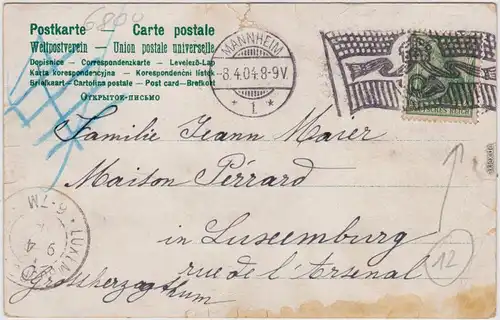 6800
Postkarte — Carte postale
Weltpostverein — Union postale universelle
Dopisnice - Correspondenzkarte - Levelező-Lap
Karta korespondencyjna - Korespondenční listek
Briefkaart - Cartolina postale - Post card - Brefkort
ОТКРЫТОЕ-ПИСЬМО
MANNHEIM
-8.4.04.8-9V
* 1. *
REICH
Familie Jeann Maier
Maison Pérrard
in Luxemburg
rue de l'Arsenal
Grossherzogthum
LUXEM
6-7M
9
4
12